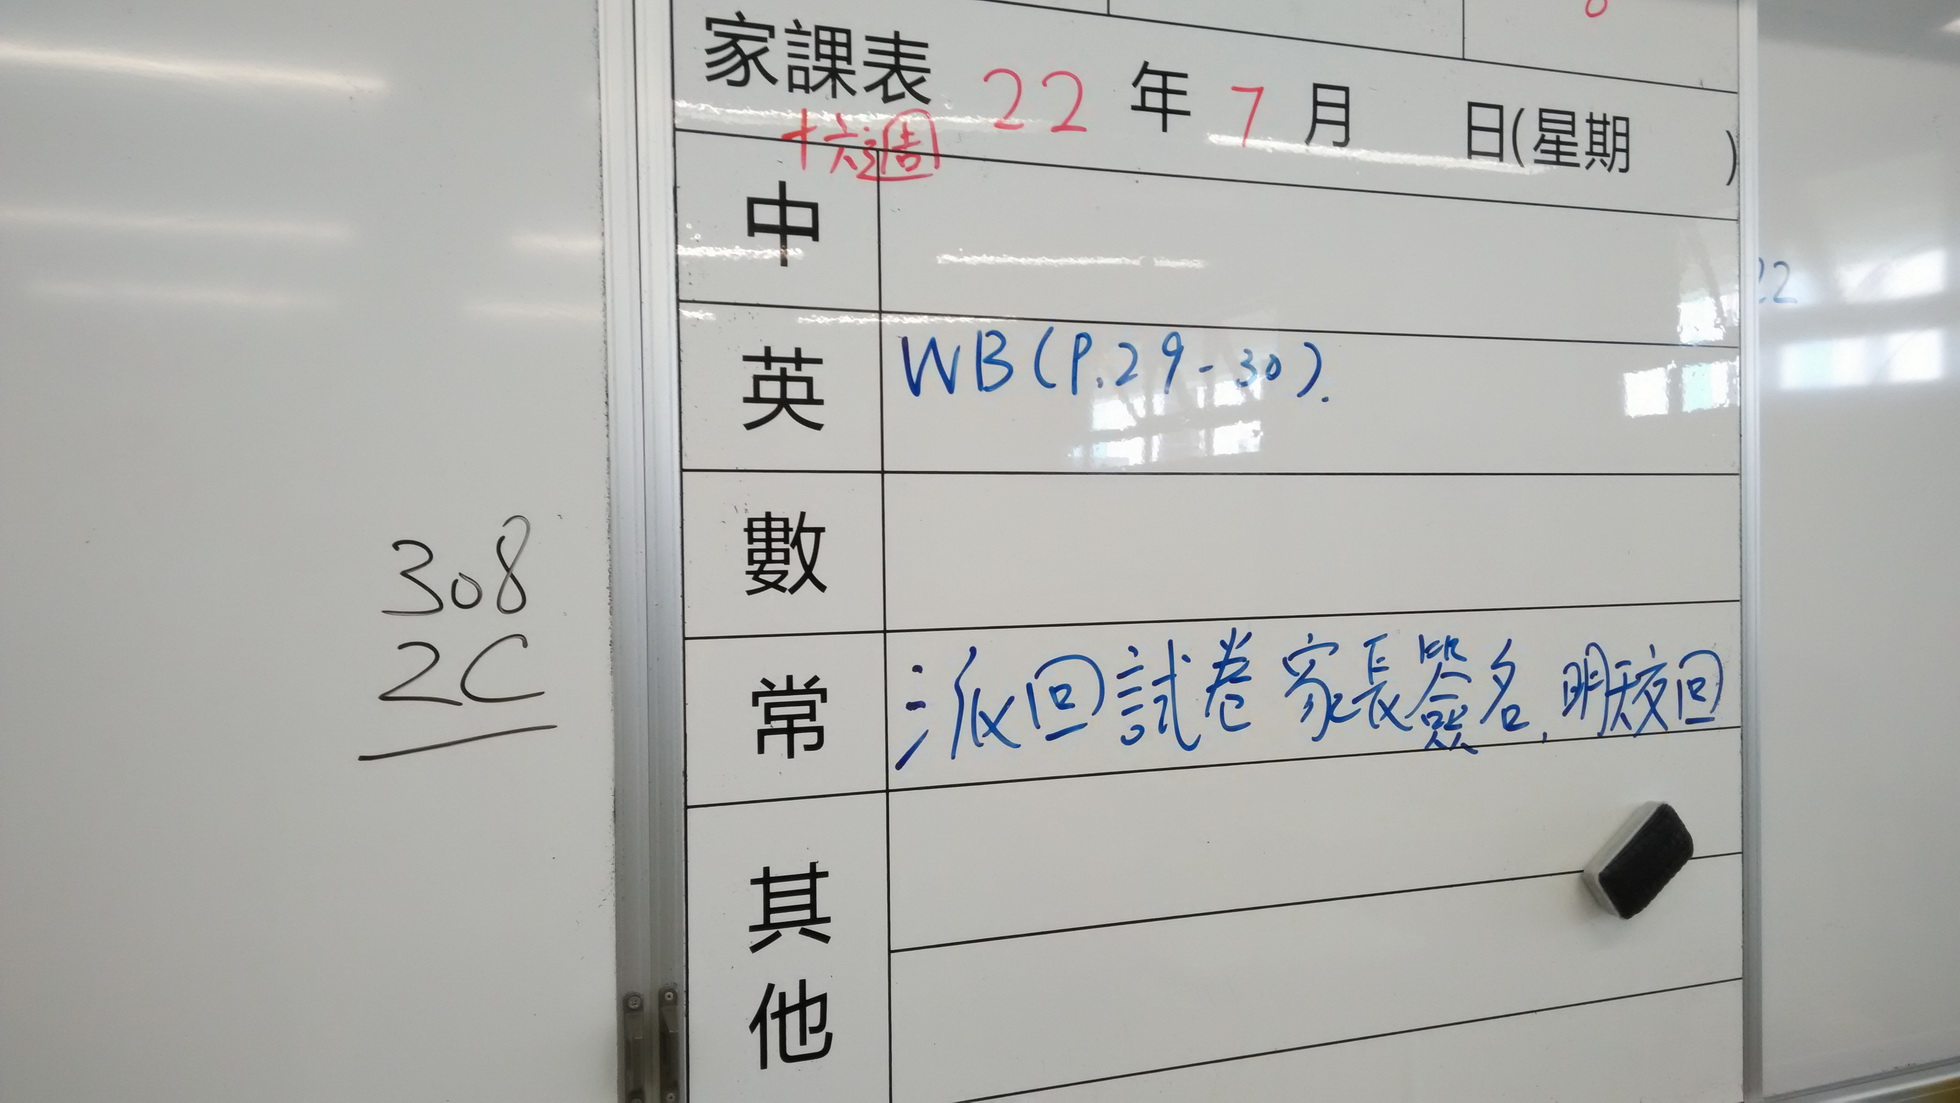 308
2C
家課表 22 年 7 月 日(星期 )
十六週
中
英 WB (P.29-30).
數
常 派回試卷家長簽名,明天交回
其
他
22